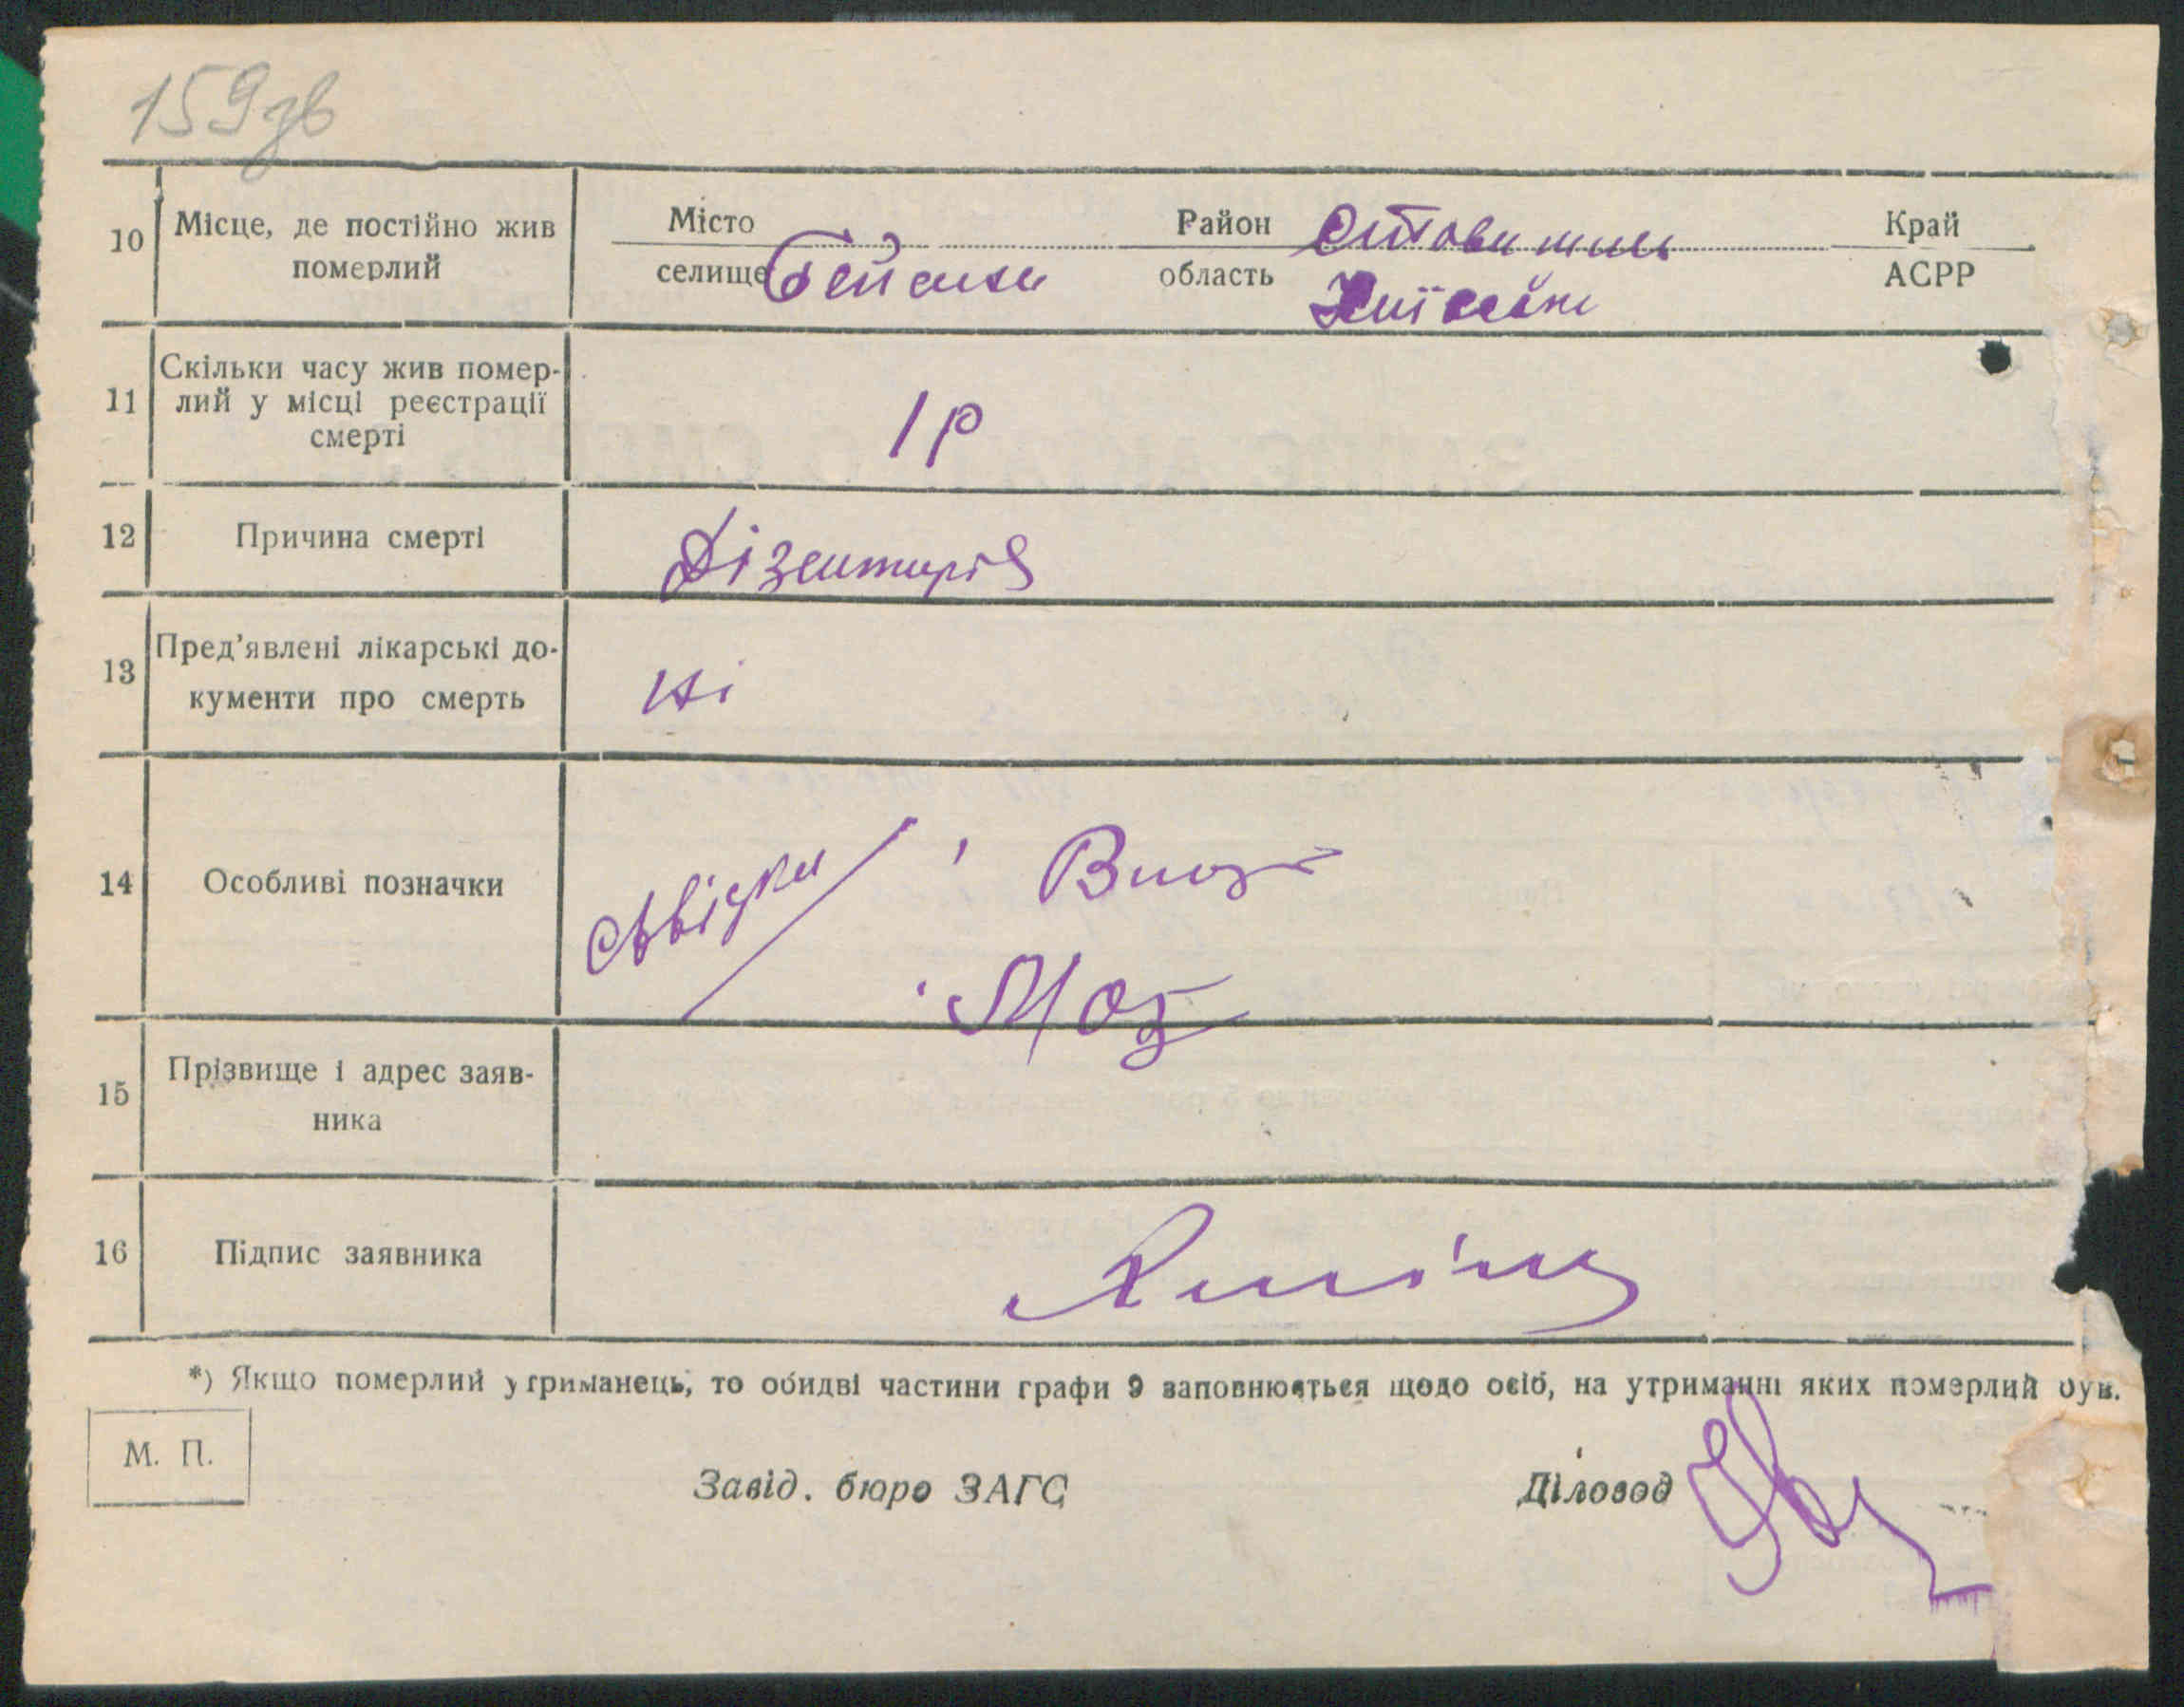 159зв
10 Місце, де постійно жив
померлий
Місто Район Край
селище область АСРР
11 Скільки часу жив помер-
лий у місці реєстрації
смерті
1 р
12 Причина смерті Дізентирія
13 Пред'явлені лікарські до-
кументи про смерть
ні
14 Особливі позначки
свідки
15 Прізвище і адрес заяв-
ника
16 Підпис заявника
*) Якщо померлий утриманець, то обидві частини графи 9 заповнюються щодо осіб, на утриманні яких померлий був.
М. П.
Завід. бюро ЗАГС Діловод